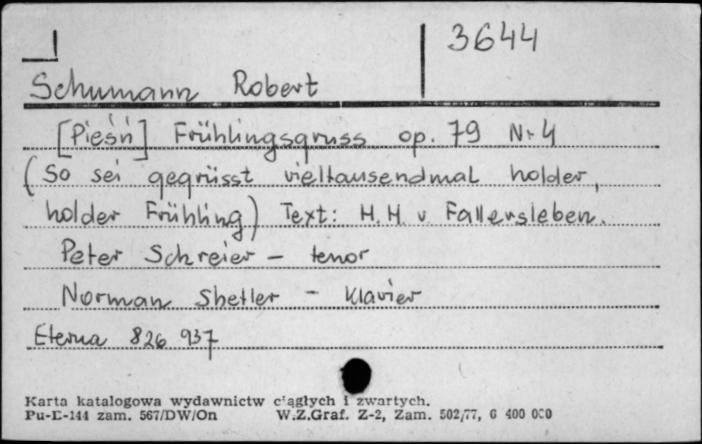 3644
Schumann Robert
[Pieśń] Frühlingsgruss op. 79 Nr 4
(So sei gegrüsst vieltausendmal holder,
holder Frühling) Text: H. H. v. Fallersleben.
Peter Schreier – tenor
Norman Shetler – Klavier
Eterna 826 937
Karta katalogowa wydawnictw ciągłych i zwartych.
Pu-D-144 zam. 567/DW/On W.Z.Graf. Z-2, Zam. 502/77, 6 400 000